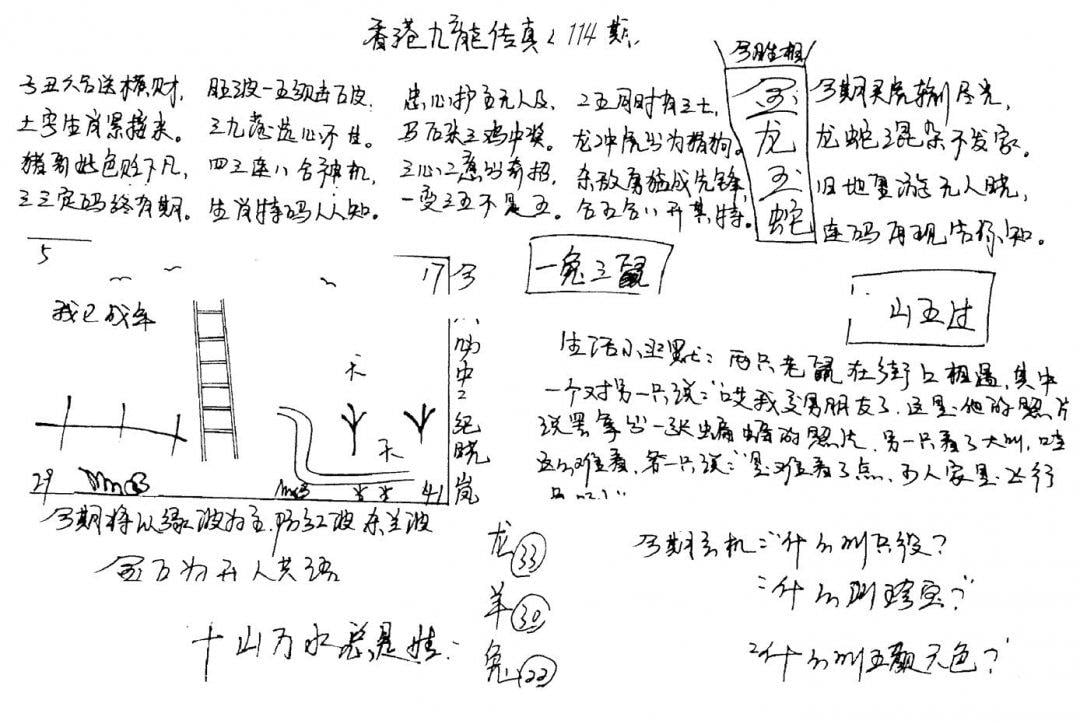 香港九龙传真 114期
今期生相
子丑久合送横财,
土字生肖紧接来。
猪哥出色贬下凡,
三三定码终有期。
旺波一五须击破,
三九落选心不甘。
四三连八合神机,
生肖特码人人知。
忠心护主无人及,
马后杂三鸡中奖。
三心二意出奇招,
一变三五不是五。
二五同时有三土,
龙冲虎出为猪狗。
杀敌勇猛成先锋,
合五合八开其特。
金
龙
玉
蛇
今期买虎输尽光,
龙蛇混杂不发家。
旧地重游无人晓,
连码再现告你知。
5
17
我已成年
天
天
29
41
今
中
纪
晓
岚
一兔三鼠
山五过
生活小幽默:两只老鼠在街口相遇,其中
一个对另一只说:"哎我交男朋友了,这是他的照片
说罢拿出一张蝙蝠的照片,另一只看了大叫,哇
这么难看,第一只说:"是难看了点,可人家是飞行
今期将以绿波为主,防红波杀兰波
十山万水总是情:
龙 33
羊 30
兔 22
今期玄机:"什么叫只役?
"什么叫珍宝?"
"什么叫五颜六色?"